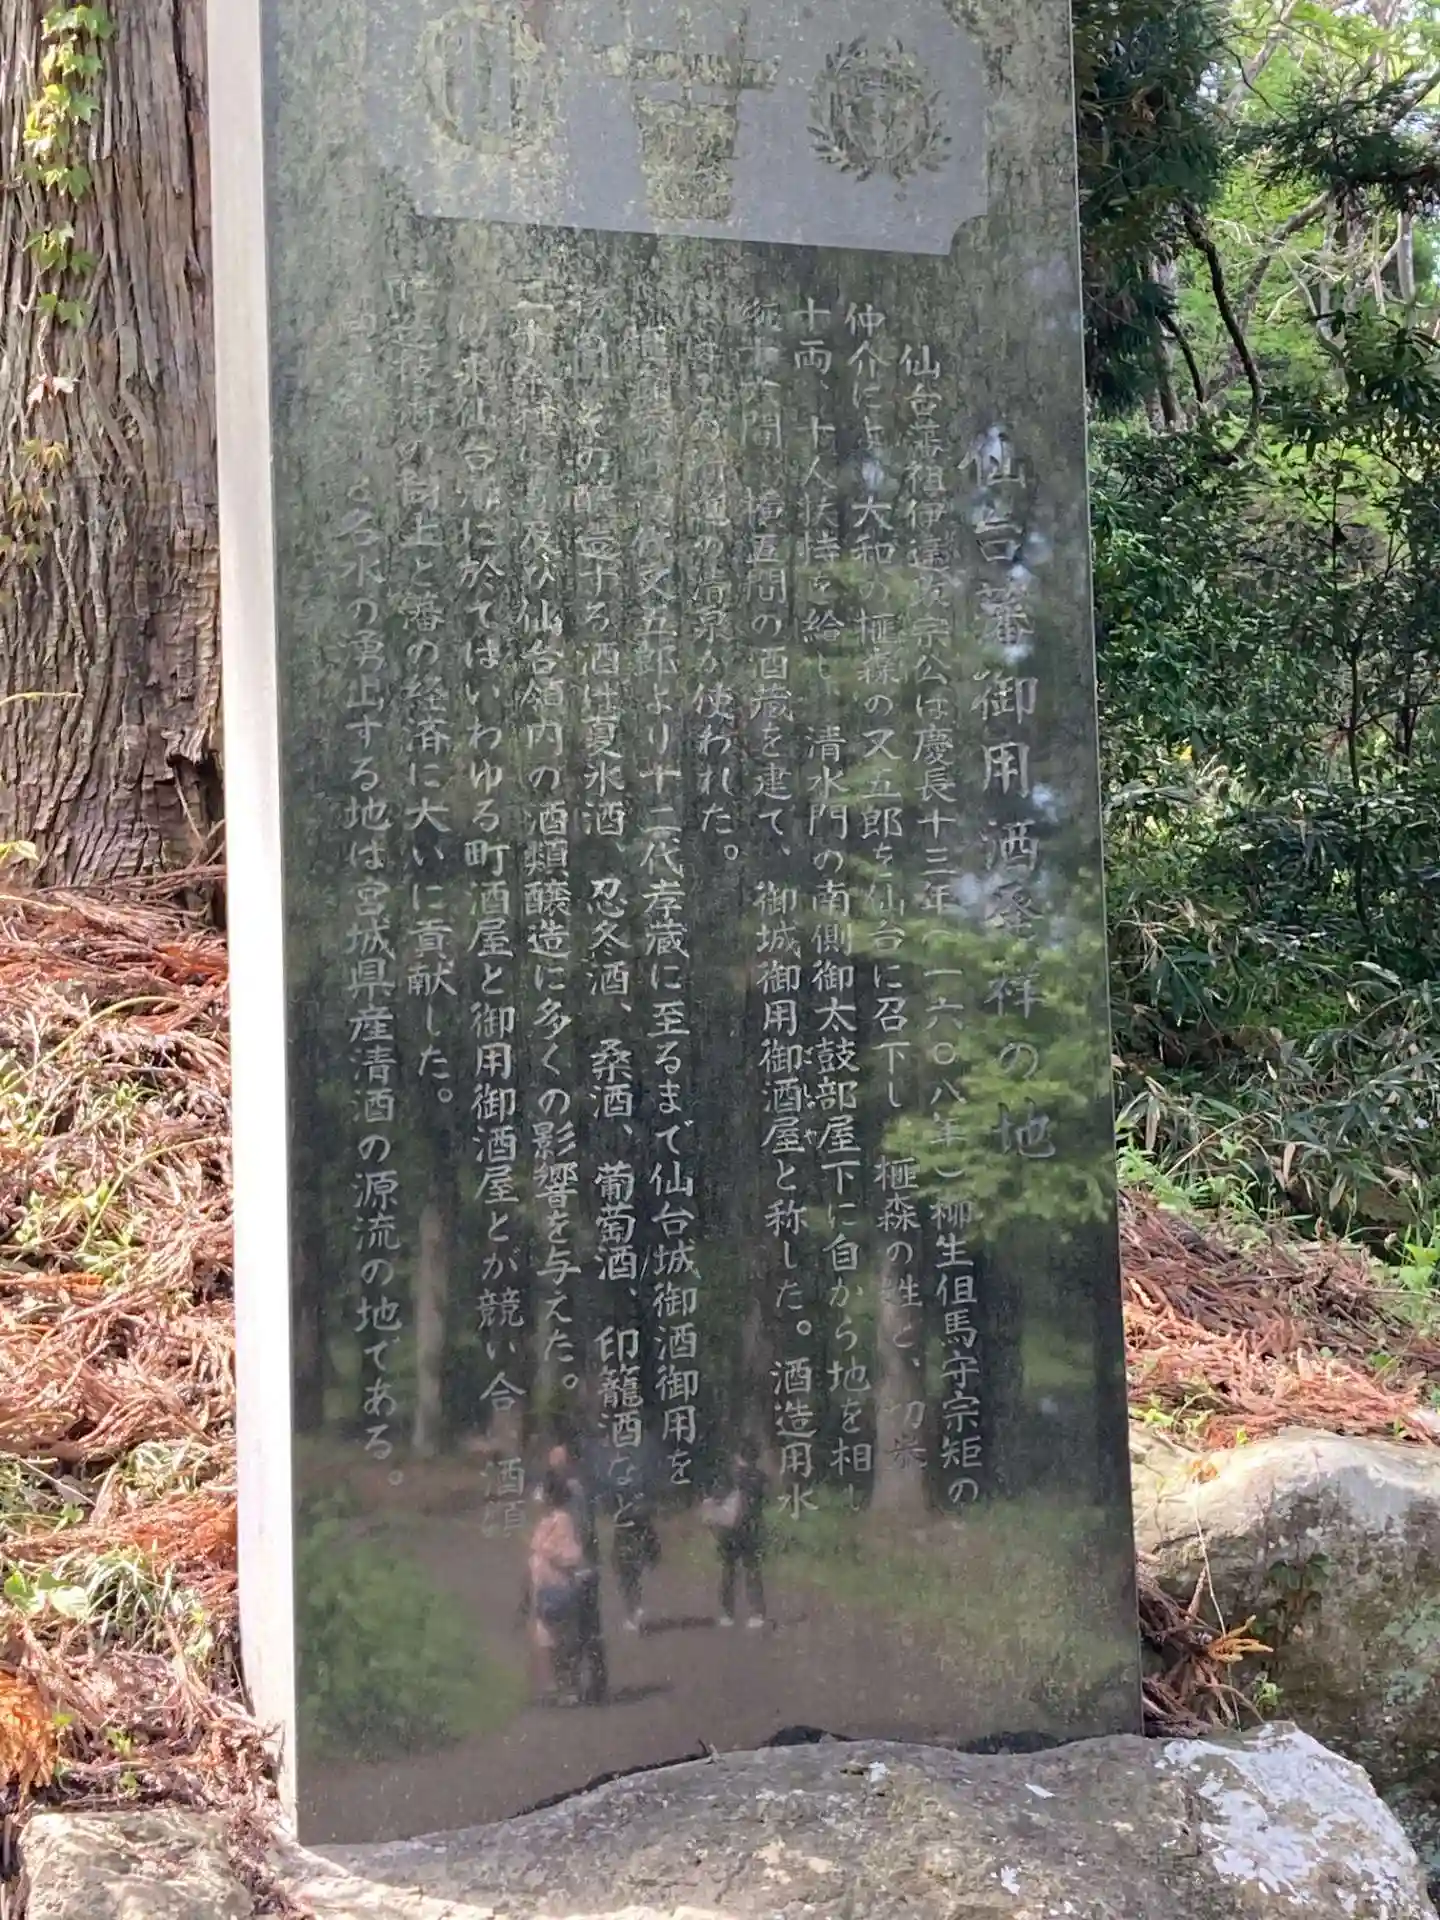 仙台藩御用酒発祥の地
仙台藩祖伊達政宗公は慶長十三年(一六〇八年)柳生但馬守宗矩の
仲介により大和の榧森の又五郎を仙台に召下し 榧森の姓と、切米
十両、十人扶持を給し 清水門の南側御太鼓部屋下に自から地を相し
十六間 横五間の酒蔵を建て、御城御用御酒屋と称した。酒造用水
の清泉が使われた。
又五郎より十二代孝蔵に至るまで仙台城御酒御用を
その醸造する酒は夏氷酒、忍冬酒、桑酒、葡萄酒、印籠酒など
及び仙台領内の酒類醸造に多くの影響を与えた。
来仙台に於てはいわゆる町酒屋と御用御酒屋とが競い合 酒
の向上と藩の経済に大いに貢献した。
名水の湧出する地は宮城県産清酒の源流の地である。